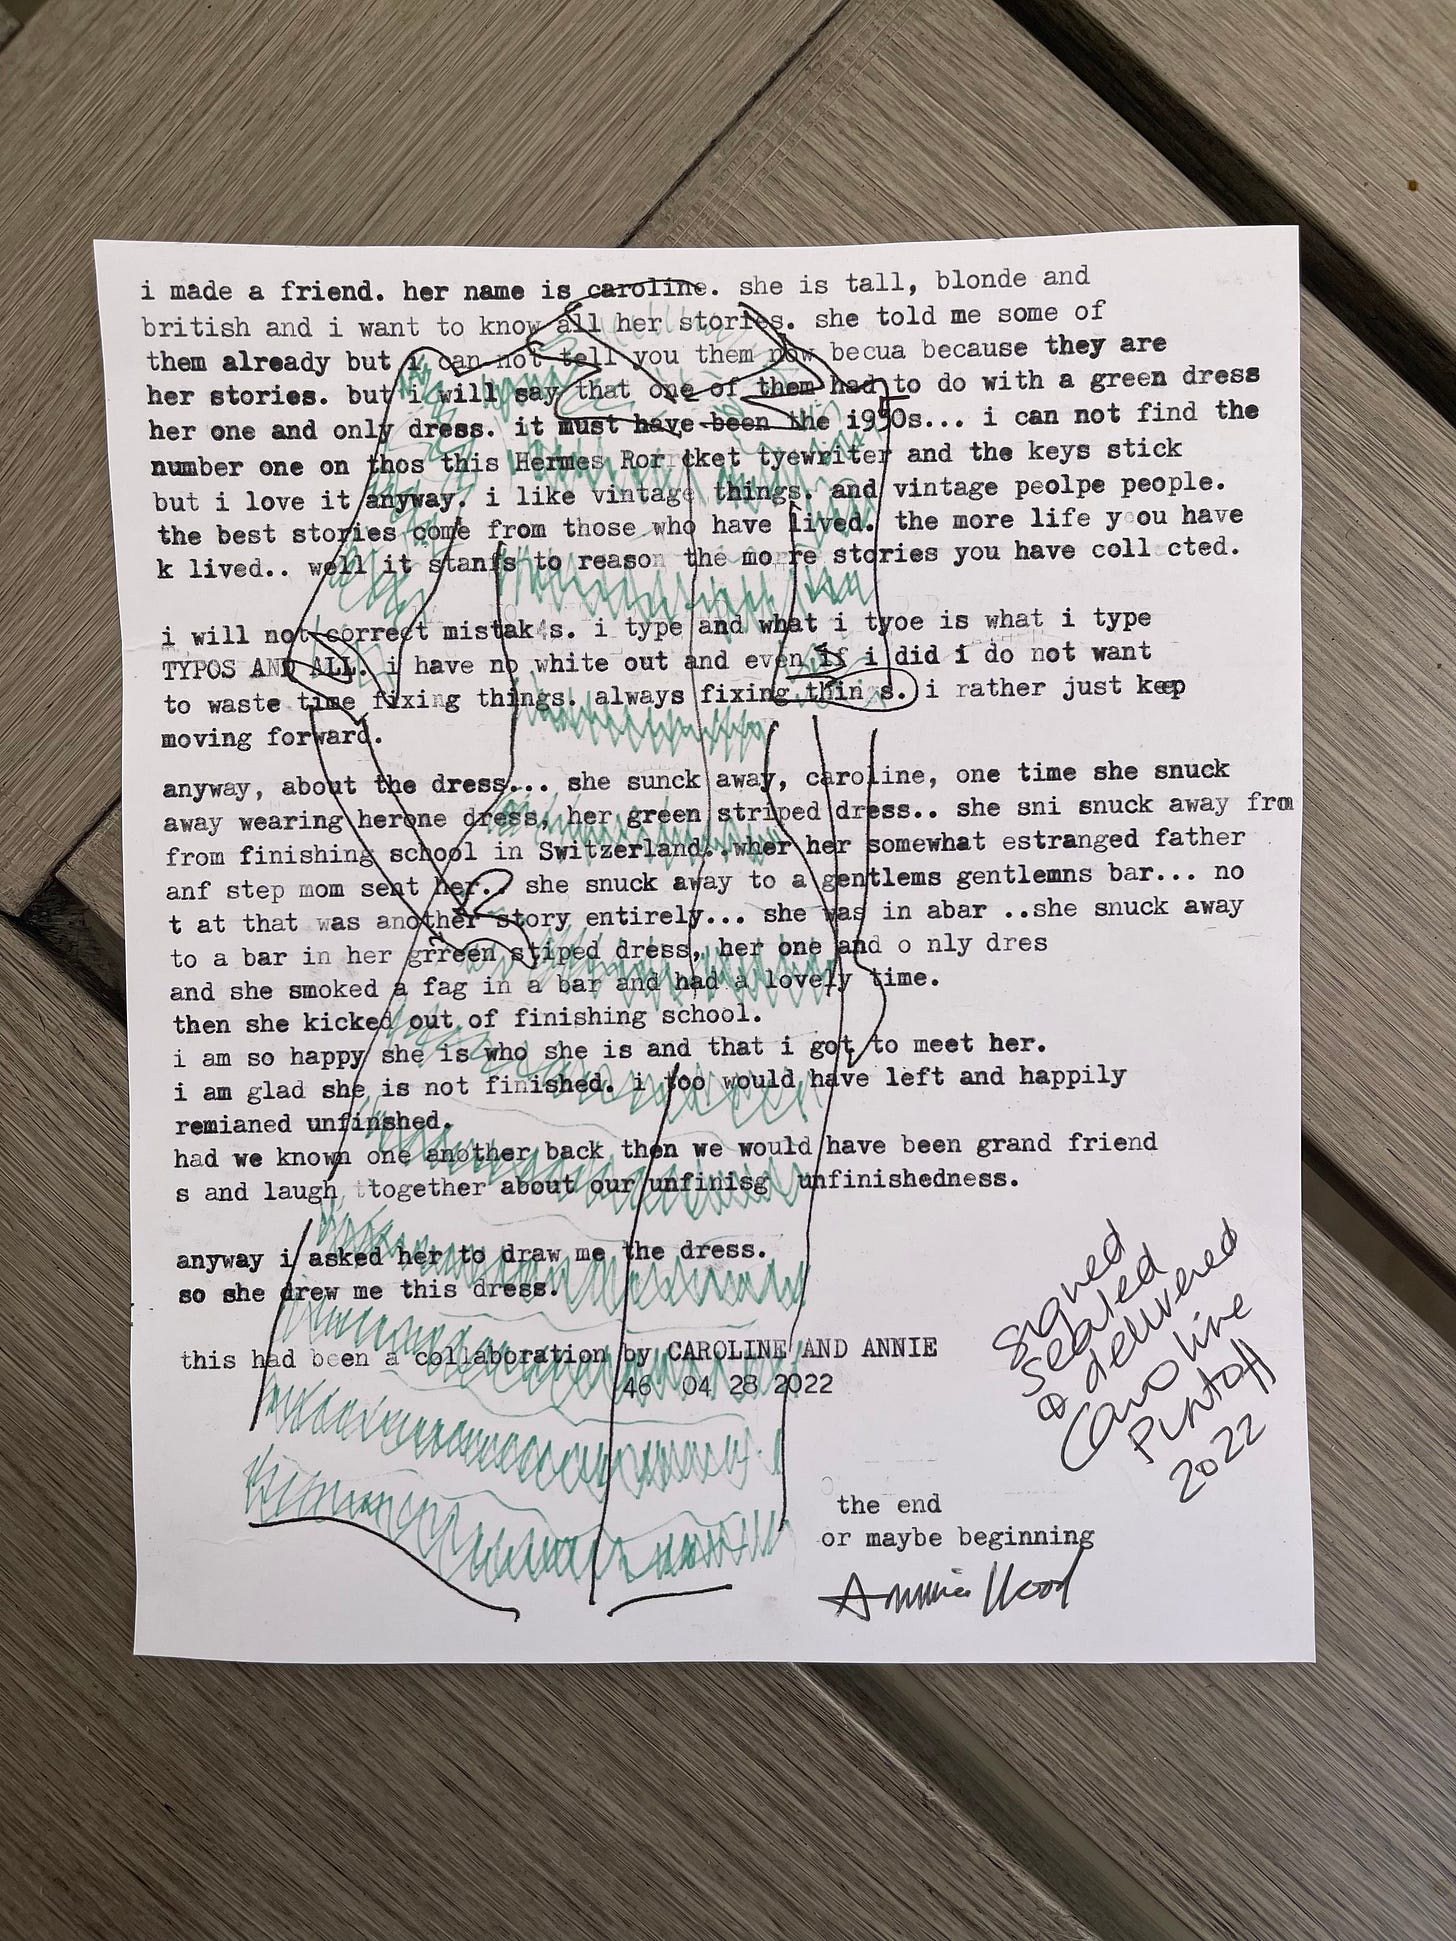 i made a friend. her name is caroline. she is tall, blonde and
british and i want to know all her stories. she told me some of
them already but i can not tell you them now becua because they are
her stories. but i will say that one of them had to do with a green dress
her one and only dress. it must have been the i950s... i can not find the
number one on thos this Hermes Ror cket tyewriter and the keys stick
but i love it anyway. i like vintage things. and vintage peolpe people.
the best stories come from those who have lived. the more life y ou have
k lived.. well it stanfs to reason the mo re stories you have coll cted.
i will not correct mistak s. i type and what i tyoe is what i type
TYPOS AND ALL. i have no white out and even if i did i do not want
to waste time fixing things. always fixing thin s. i rather just keep
moving forward.
anyway, about the dress... she sunck away, caroline, one time she snuck
away wearing herone dress, her green striped dress.. she sni snuck away from
from finishing school in Switzerland..wher her somewhat estranged father
anf step mom sent her.. she snuck away to a gentlems gentlemns bar... no
t at that was another story entirely... she was in abar ..she snuck away
to a bar in her grreen stiped dress, her one and o nly dres
and she smoked a fag in a bar and had a lovely time.
then she kicked out of finishing school.
i am so happy she is who she is and that i got to meet her.
i am glad she is not finished. i too would have left and happily
remianed unfinshed.
had we known one another back then we would have been grand friend
s and laugh ttogether about our unfinisg unfinishedness.
anyway i asked her to draw me the dress.
so she drew me this dress.
this had been a collaboration by CAROLINE AND ANNIE
46 04 28 2022
signed
sealed
& delivered
Caroline
Puntoff
2022
the end
or maybe beginning
Annie Wood